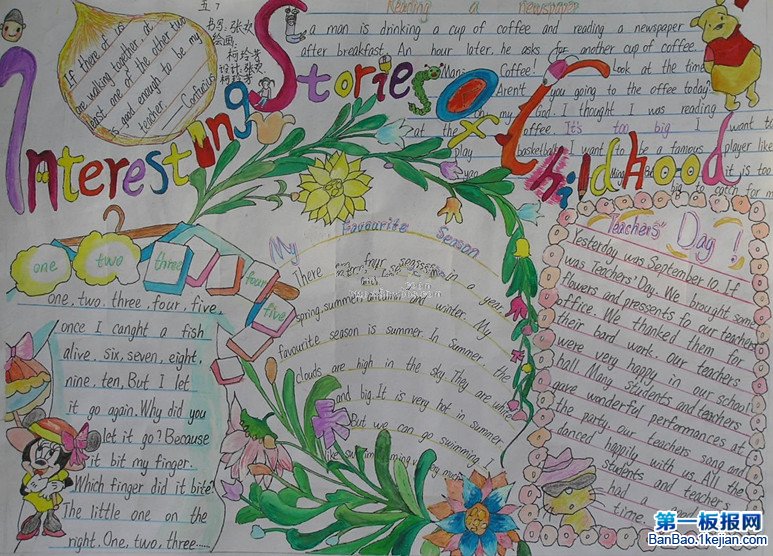 Interesting Stories of Childhood
If there of us
are walking together, at
least one of the other two
is good enough to be my
teacher. Confucius
Reading a newspaper
a man is drinking a cup of coffee and reading a newspaper
after breakfast. An hour later, he asks for another cup of coffee.
Coffee! Look at the time
Aren't you going to the offee today?
my God. I thought I was reading
at the offee. It's too big I want to
play basketball. I want to be a famous player like
it is too
big to catch for m
one
two
three
four
five
one, two, three, four, five,
once I canght a fish
alive. six, seven, eight,
nine, ten, But I let
it go again. Why did you
let it go? Because
it bit my finger.
Which finger did it bite?
The little one on the
right. One, two, three......
My Favourite Season
There are four seasses in a year,
spring, summer, autumn and winter. My
favourite season is summer. In Summer, the
clouds are high in the sky. They are white
and big. It is very hot in summer.
But we can go swimming.
Teachers' Day!
Yesterday was September 10. If
was Teachers' Day. We brought some
flowers and pressents fo our teachers
office. We thanked them for
their bard work. Our teachers
were very happy in our school
hall. Many students and teachers
gave wonderful performances at
the party. Our teachers sang and
danced happily with us. All the
students and teacher
had a good
time.
第一板报网
BanBao.1kejian.com